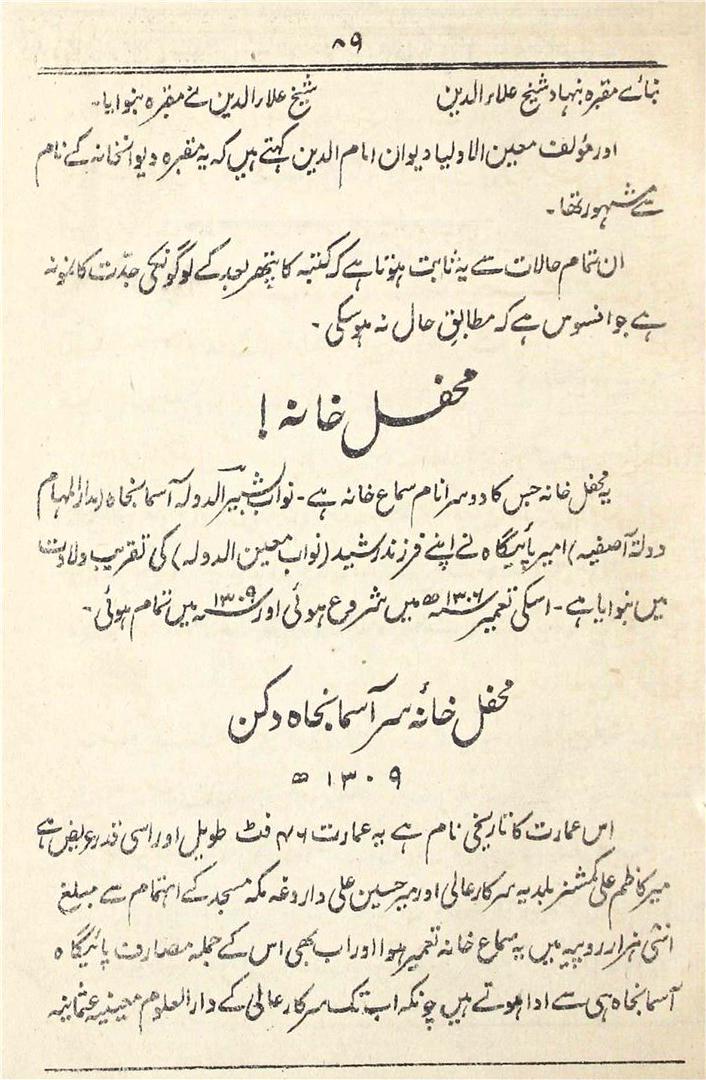 ۸۹
بنائے مقبرہ بنہاد شیخ علاء الدین شیخ علاء الدین نے مقبرہ بنوایا۔
اور مؤلف معین الاولیا دیوان امام الدین کہتے ہیں کہ یہ مقبرہ دیوانخانہ کے نام
سے مشہور تھا۔
ان تمام حالات سے یہ ثابت ہوتا ہے کہ کتبہ کا پتھر بعد کے لوگونکی جدّت کا نمونہ
ہے جو افسوس ہے کہ مطابق حال نہ ہو سکی۔
محفل خانہ!
یہ محفل خانہ جس کا دوسرا نام سماع خانہ ہے۔ نواب بشیر الدولہ آسمانجاہ (مدار المہام
دولۃ آصفیہ) امیر پائیگاہ نے اپنے فرزند رشید (نواب معین الدولہ) کی تقریب ولادت
میں بنوایا ہے۔ اسکی تعمیر سنہ ۱۳۰۶ھ میں شروع ہوئی اور سنہ ۱۳۰۹ میں تمام ہوئی۔
محفل خانۂ سر آسمانجاہ دکن
۱۳۰۹ھ
اس عمارت کا تاریخی نام ہے یہ عمارت ۴۶ فٹ طویل اور اسی قدر عریض ہے
میر کاظم علی کمشنر بلدیہ سرکار عالی اور میر حسین علی داروغہ مکہ مسجد کے اہتمام سے مبلغ
انثی ہزار روپیہ میں یہ سماع خانہ تعمیر ہوا اور اب بھی اس کے جملہ مصارف پائیگاہ
آسمانجاہ ہی سے ادا ہوتے ہیں چونکہ اب تک سرکار عالی کے دار العلوم معینیہ عثمانیہ